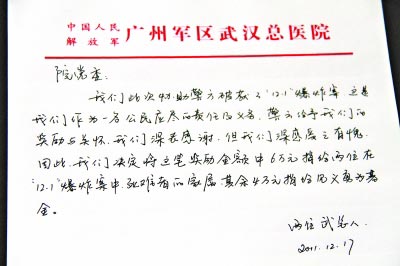 中国人民
解放军
广州军区武汉总医院
院党委:
我们此次协助警方破获了“12.1”爆炸案,这是
我们作为一名公民应尽的责任与义务,警方给予我们的
奖励与关怀,我们深表感谢,但我们深感受之有愧,
因此,我们决定将这笔奖励金额中6万元捐给两位在
“12.1”爆炸案中死难者的家属,其余4万元捐给见义勇为基
金。
两位武总人
2011.12.17